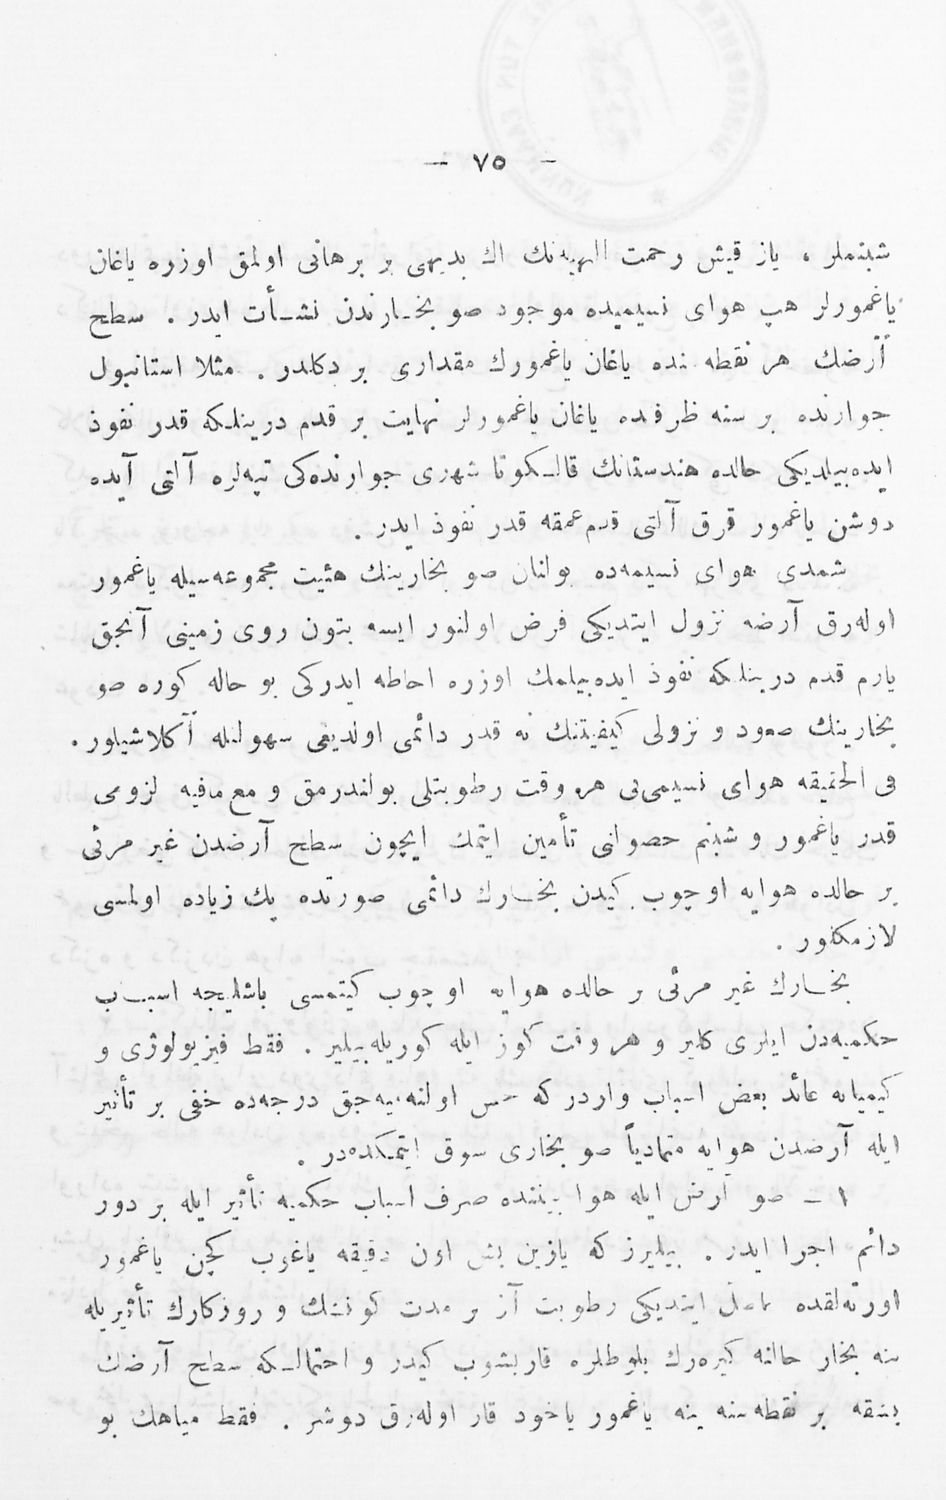 — ٧٥ —
شبنملر ، ياز قيش رحمت الهيه‌نك اك بديهى بر برهانى اولمق اوزره ياغان
ياغمورلر هپ هواى نسيميده موجود صو بخارندن نشأت ايدر . سطح
آرضك هر نقطه سنده ياغان ياغمورك مقدارى بر دكلدر . مثلا استانبول
جوارنده بر سنه ظرفنده ياغان ياغمورلر نهايت بر قدم درينلكه قدر نفوذ
ايده‌بيلديكى حالده هندستانك قالكوتا شهرى جوارنده‌كى تپه‌لره آلتى آيده
دوشن ياغمور قرق آلتى قدم عمقه قدر نفوذ ايدر .
شمدى هواى نسيمه‌ده بولنان صو بخارينك هئيت مجموعه‌سيله ياغمور
اوله‌رق آرضه نزول ايتديكى فرض اولنور ايسه بتون روى زمينى آنجق
يارم قدم درينلكه نفوذ ايده‌بيلمك اوزره احاطه ايدركى بو حاله كوره صو
بخارينك صعود و نزولى كيفيتنك نه قدر دائمى اولديغى سهولتله آكلاشيلور .
فى الحقيقه هواى نسيمى‌يى هر وقت رطوبتلى بولندرمق و مع مافيه لزومى
قدر ياغمور و شبنم حصولنى تأمين ايتمك ايچون سطح آرضدن غير مرئى
بر حالده هوايه اوچوب كيدن بخارك دائمى صورتده پك زياده اولمسى
لازمكلور .
بخارك غير مرئى بر حالده هوايه اوچوب كيتمسى باشليجه اسباب
حكميه‌دن ايلرى كلير و هر وقت كوز ايله كوريله‌بيلير . فقط فيزيولوژى و
كيميايه عائد بعض اسباب واردر كه حس اولنه‌ميه‌جق درجه‌ده خفى بر تأثير
ايله آرضدن هوايه متمادياً صو بخارى سوق ايتمكده‌در .
١ — صو آرض ايله هوا بيننده صرف اسباب حكميه تأثير ايله بر دور
دائم اجرا ايدر . بيليرز كه يازين بش اون دقيقه ياغوب كچن ياغمور
اورته‌لقده حاصل ايتديكى رطوبت آز بر مدت كونشك و روزكارك تأثيريله
ينه بخار حالنه كيره‌رك بلوطلره قاريشوب كيدر و احتمالكه سطح آرضك
بشقه بر نقطه‌سنه ينه ياغمور ياخود قار اوله‌رق دوشر . فقط مياهك بو